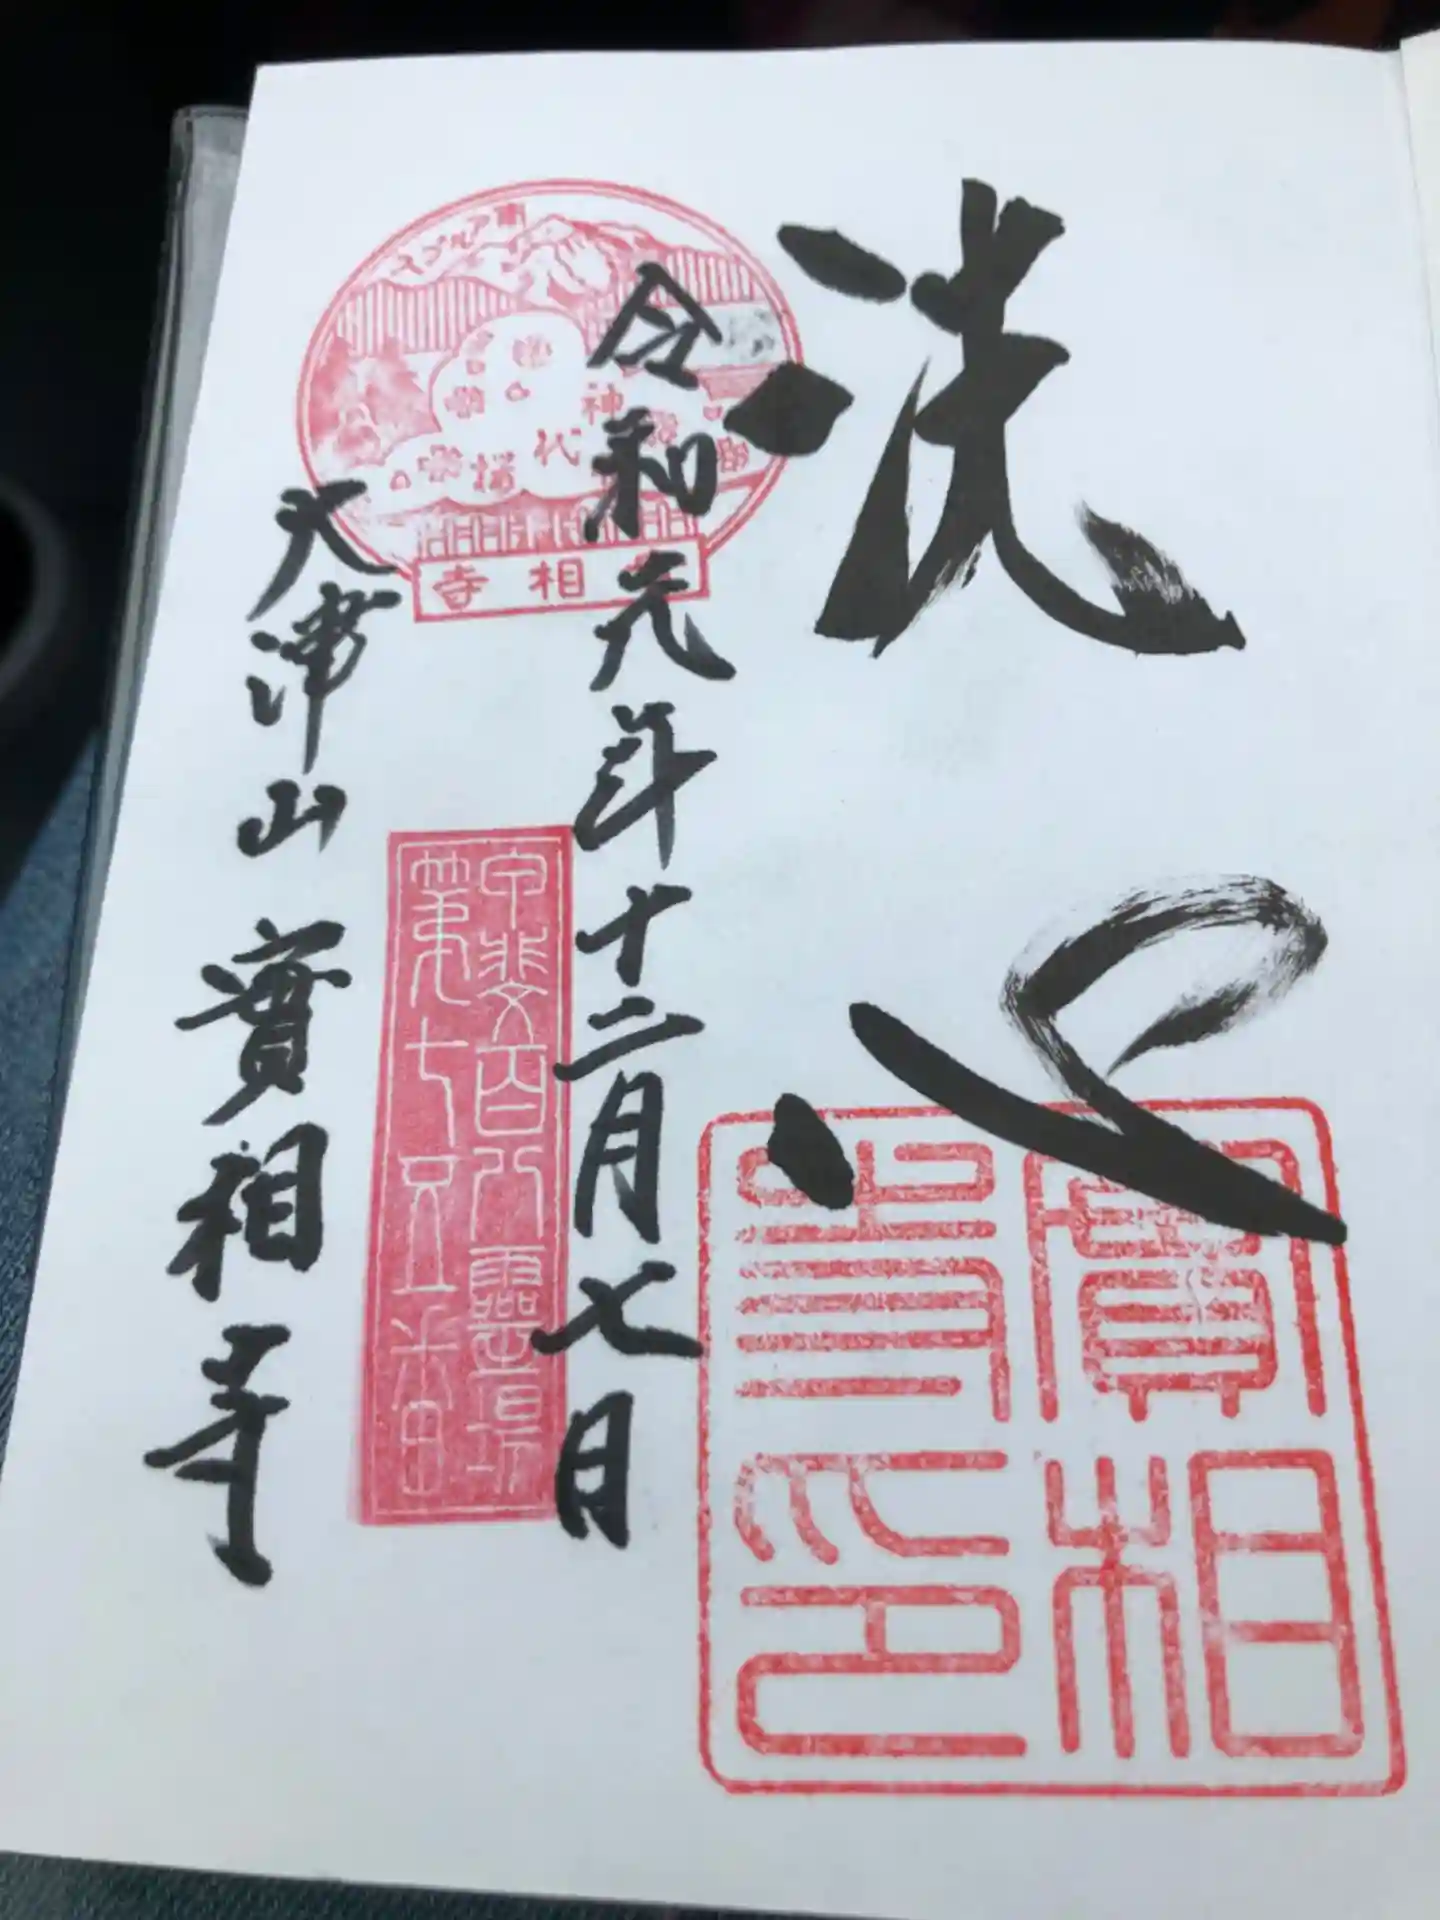 洗心
令和元年十二月七日
大津山 實相寺
南アルプス
神代桜
實相寺
甲斐百八霊場
第七五番
實相寺印